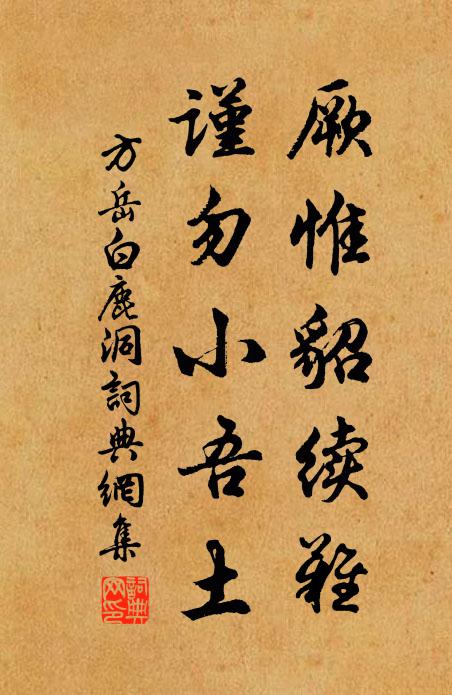 厥惟貂续難
謹勿小吾土
方岳白鹿洞詞典網集
詞典网印